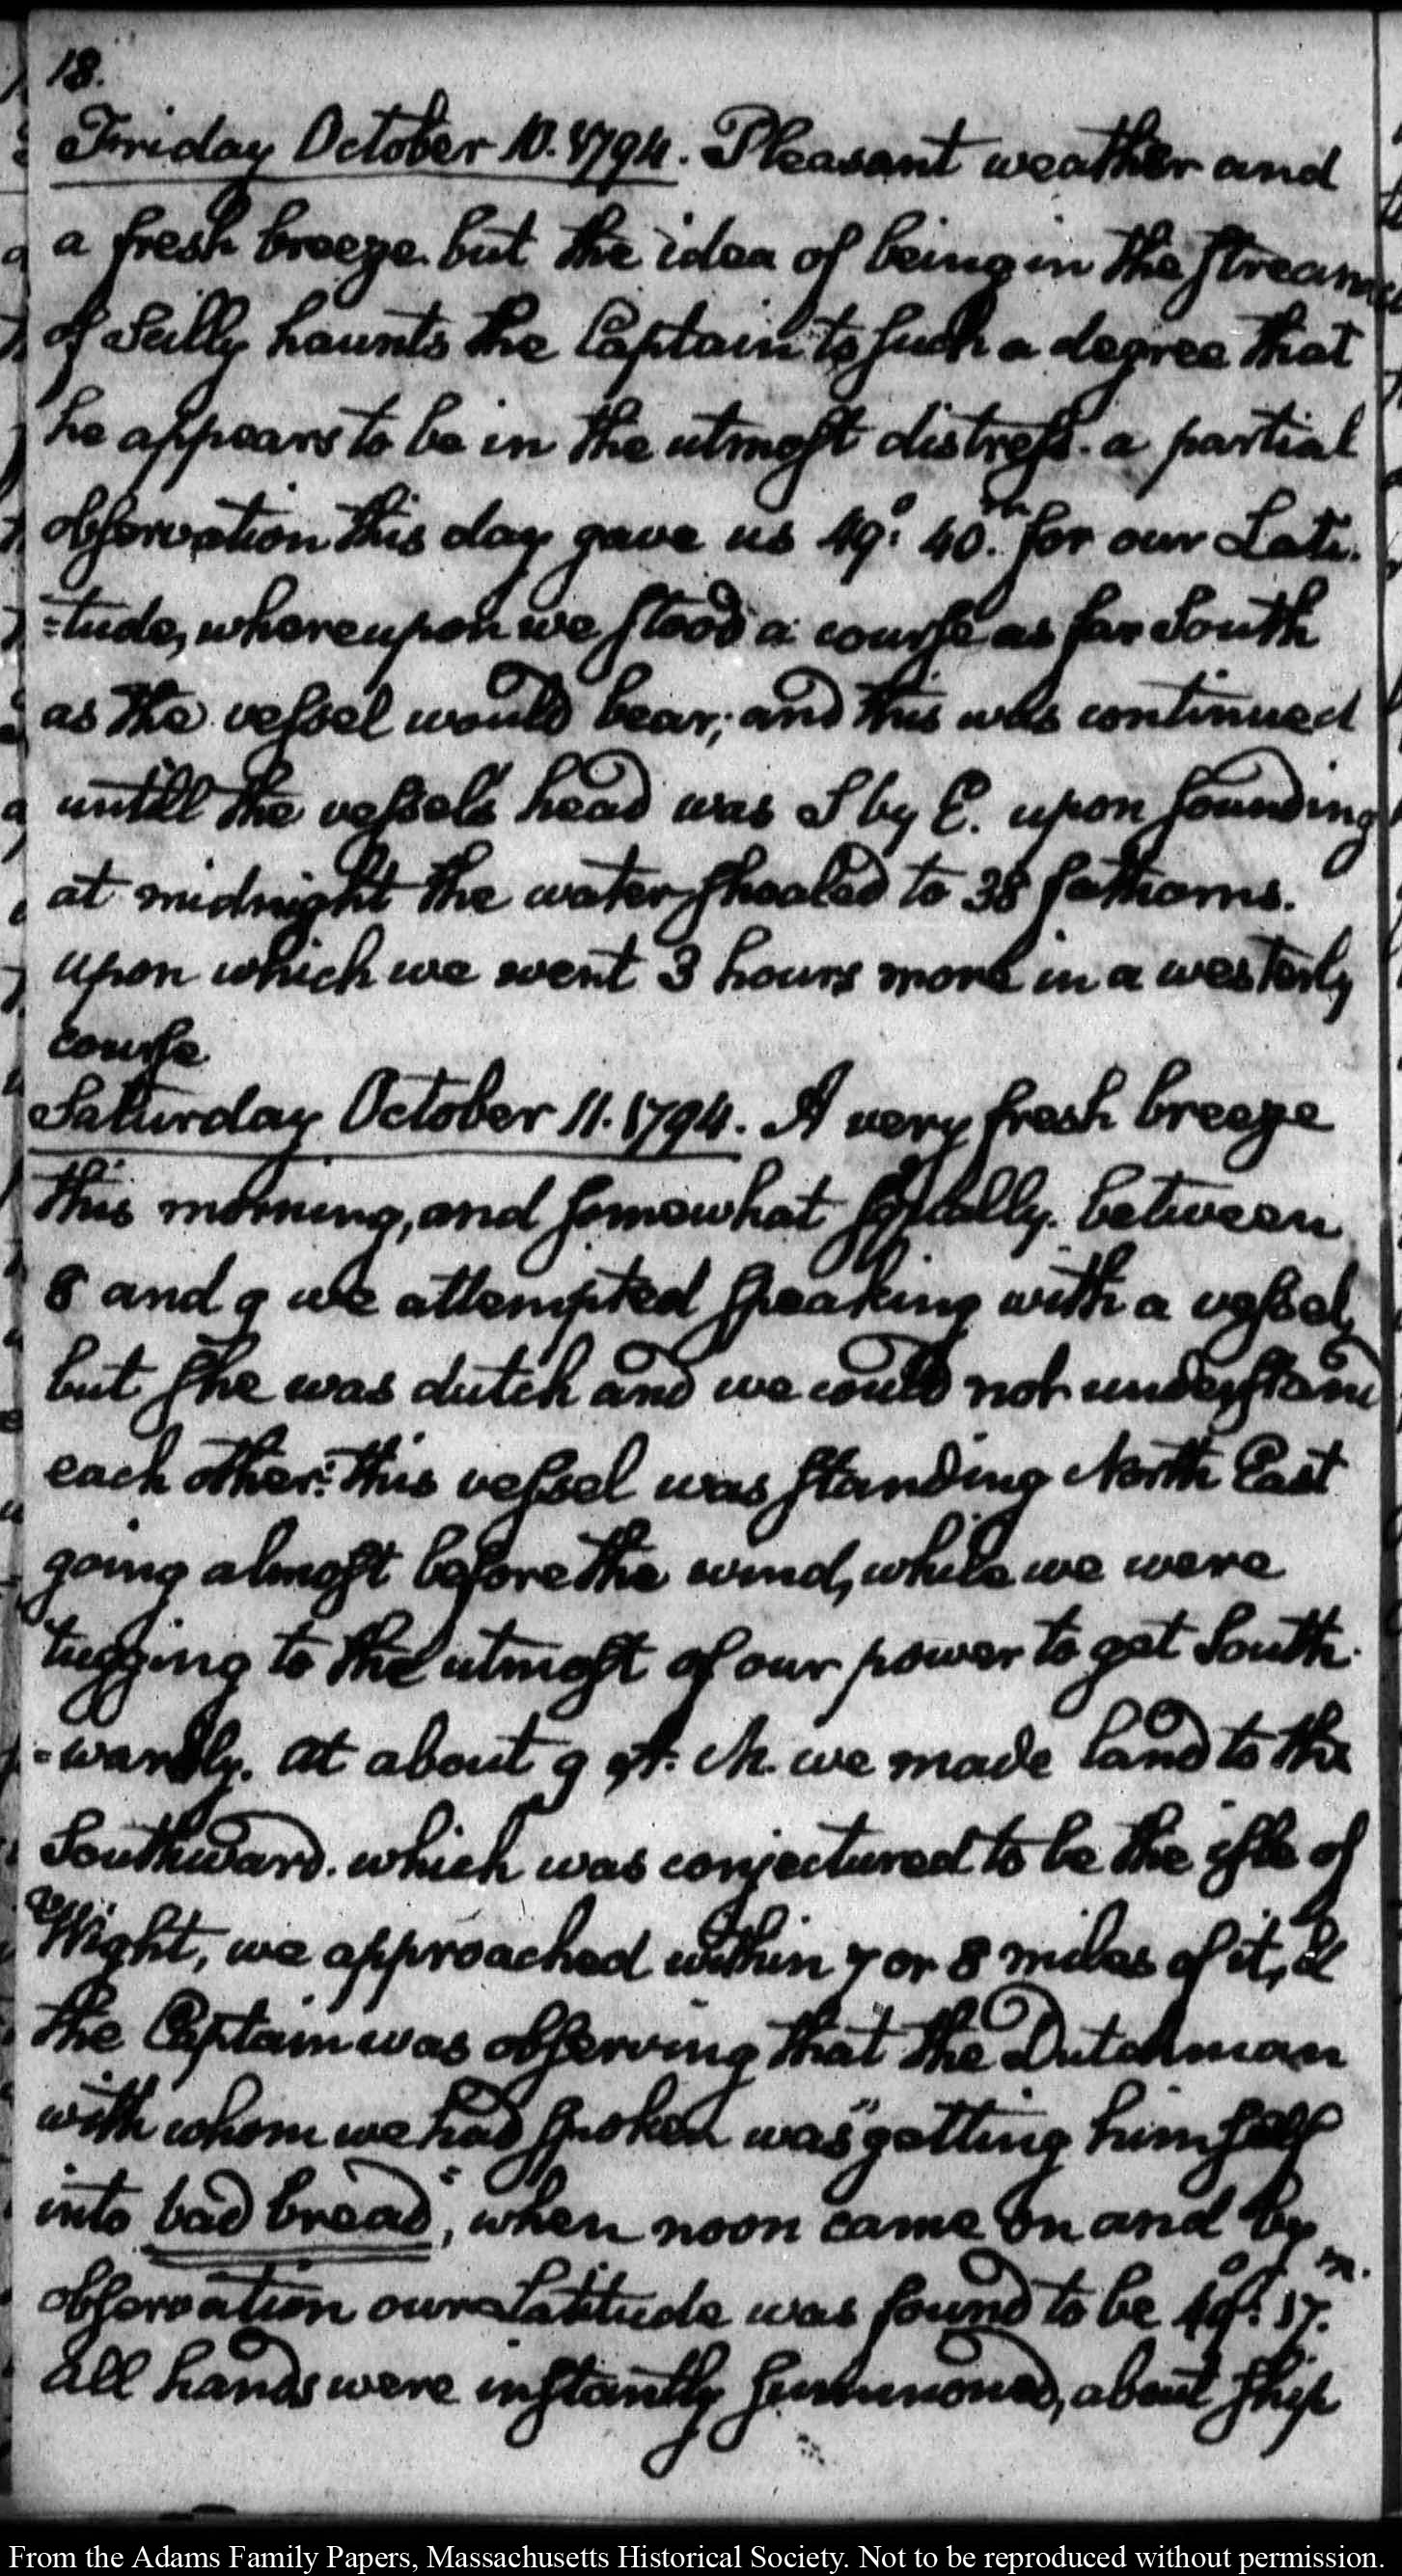 18.
Friday October 10. 1794. Pleasant weather and
a fresh breeze. but the idea of being in the stream
of Scilly haunts the Captain to such a degree that
he appears to be in the utmost distress. a partial
observation this day gave us 49°: 40.m for our Lati-
=tude, whereupon we stood a course as far South
as the vessel would bear; and this was continued
untill the vessels head was S by E. upon sounding
at midnight the water shoaled to 38 fathoms.
upon which we went 3 hours more in a westerly
course
Saturday October 11. 1794. A very fresh breeze
this morning, and somewhat squally. between
8 and 9 we attempted speaking with a vessel,
but she was dutch and we could not understand
each other: this vessel was standing North East
going almost before the wind, while we were
tugging to the utmost of our power to get South-
=wardly. at about 9 A. M. we made land to the
Southward. which was conjectured to be the isle of
Wight, we approached within 7 or 8 miles of it, &
the Captain was observing that the Dutchman
with whom we had spoken was "getting himself
into bad bread", when noon came on and by
observation our Latitude was found to be 49°: 57.m.
all hands were instantly summoned, about ship
From the Adams Family Papers, Massachusetts Historical Society. Not to be reproduced without permission.